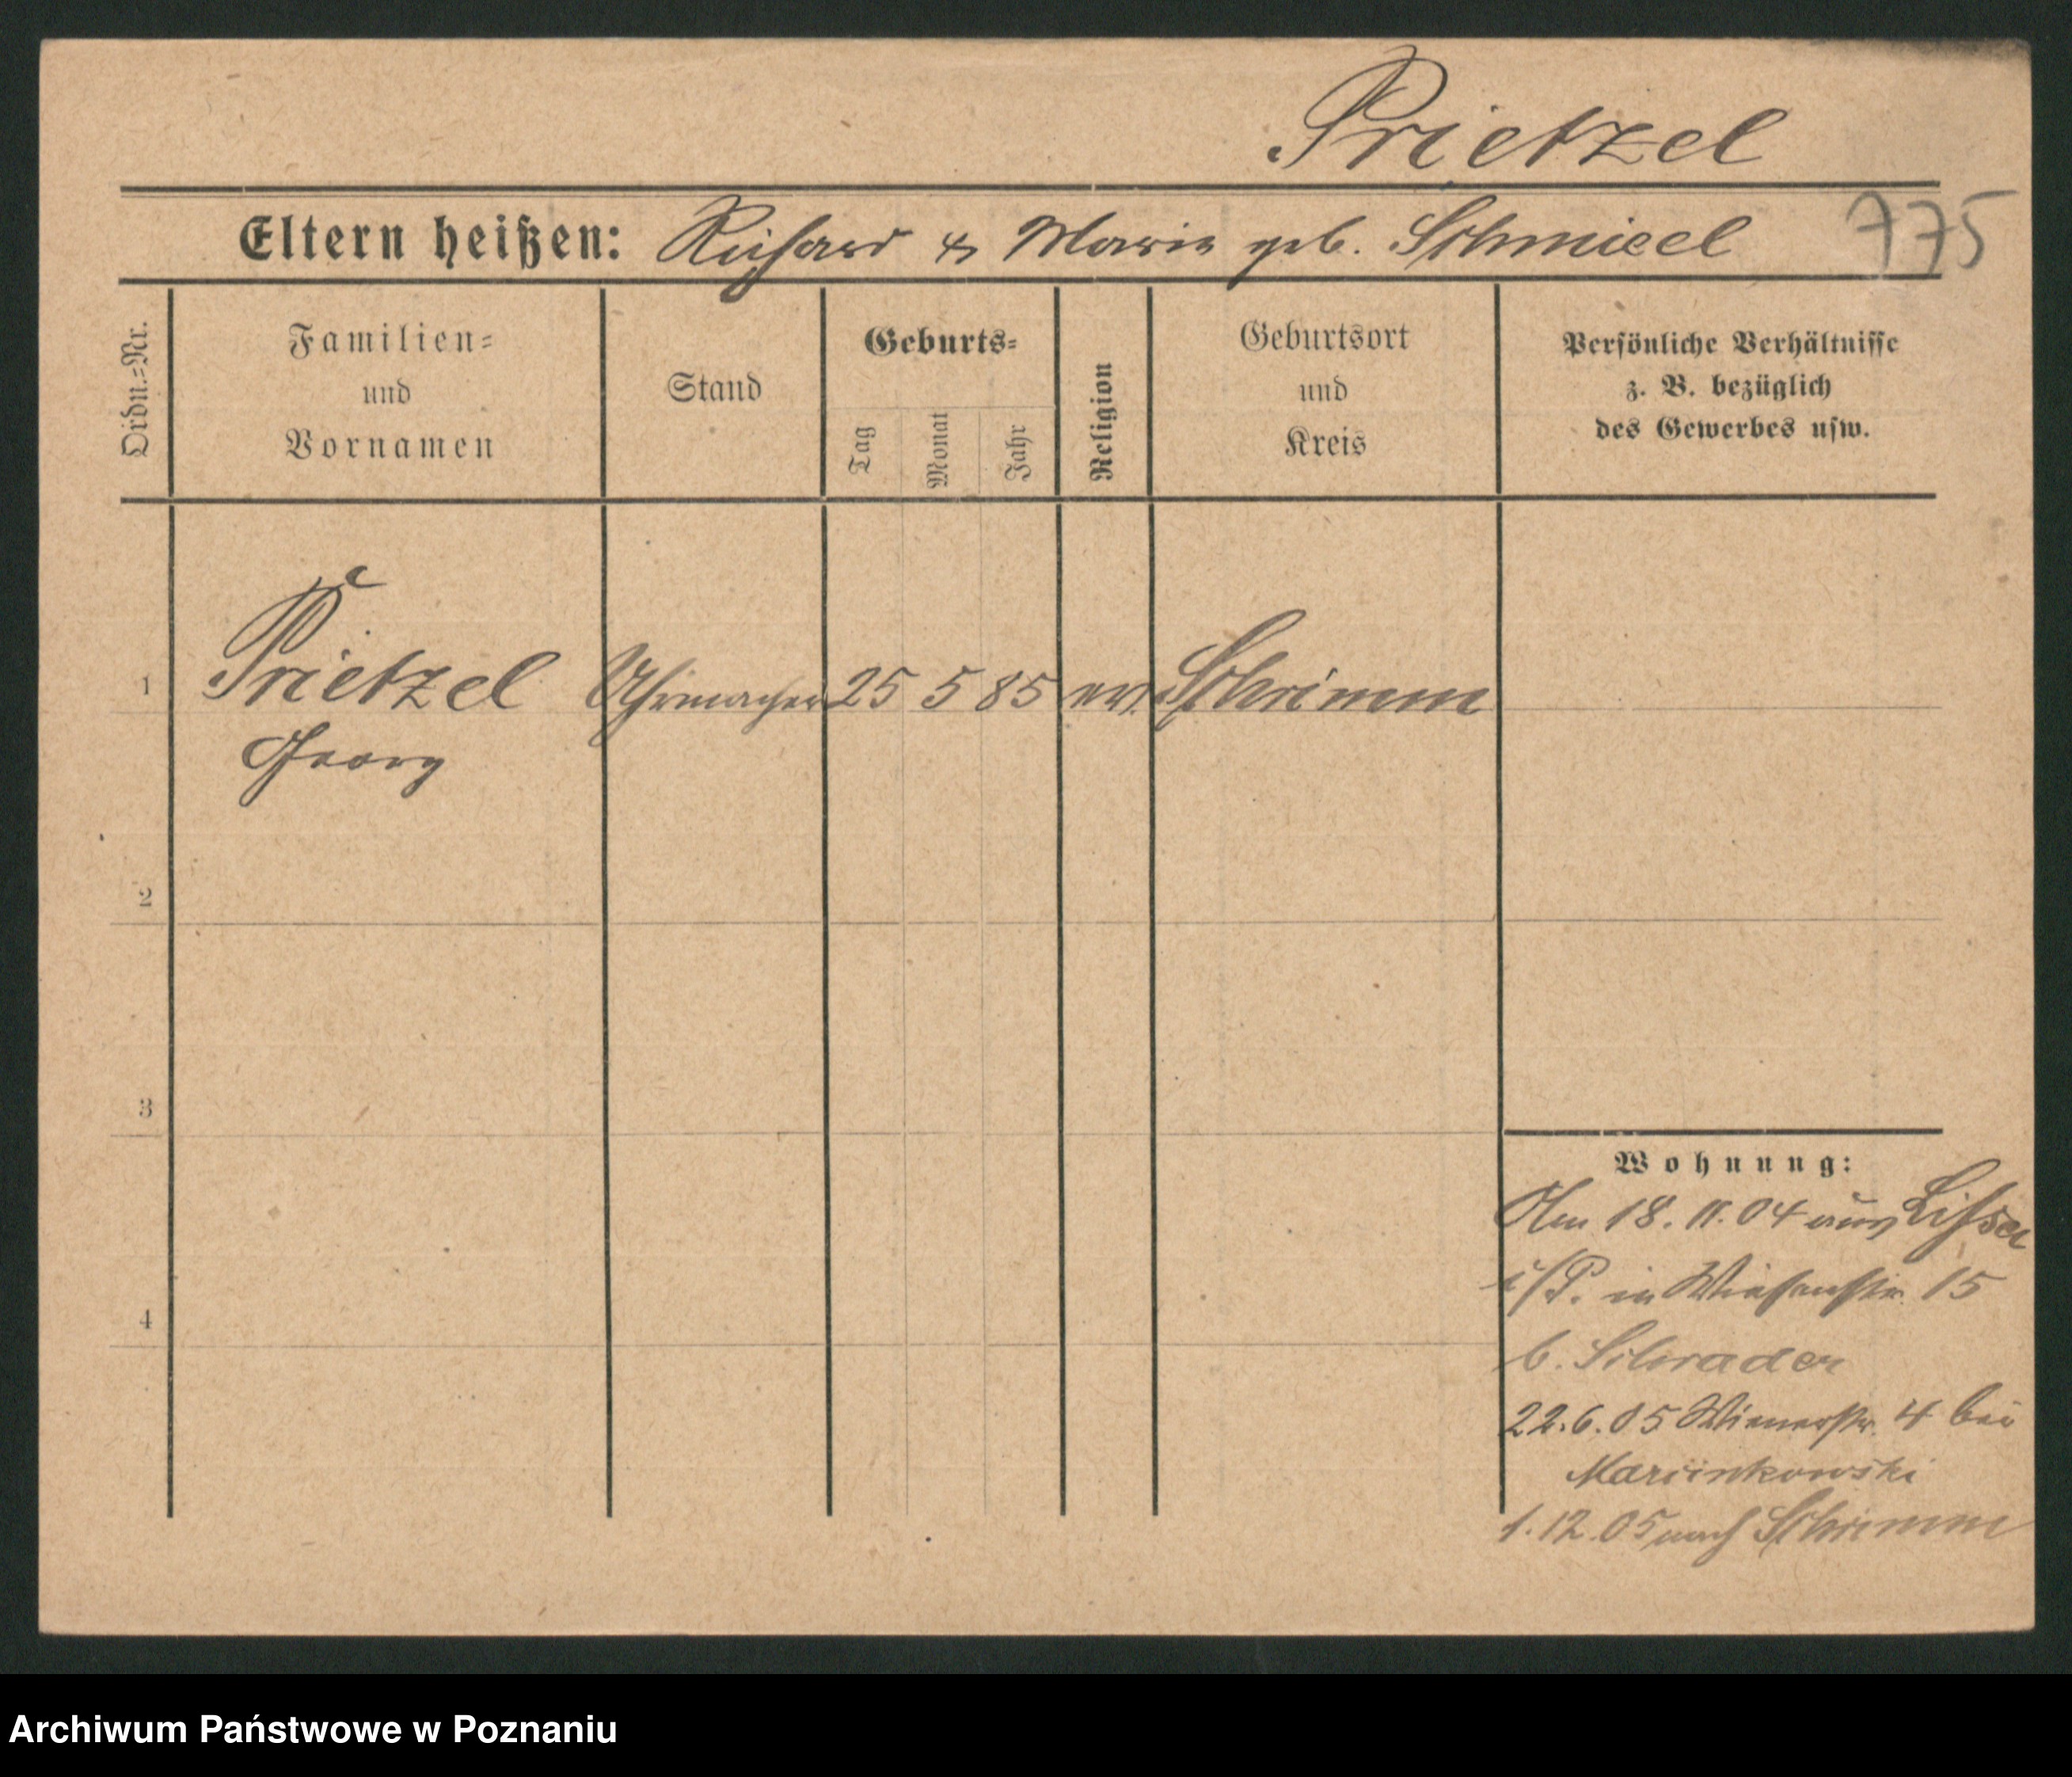 Prietzel
Eltern heißen: Richard & Marie geb. Schmicel
775
Ordn.=Nr.
Familien=
und
Vornamen
Stand
Geburts=
Tag
Monat
Jahr
Religion
Geburtsort
und
Kreis
Persönliche Verhältnisse
z. B. bezüglich
des Gewerbes usw.
1 Prietzel Uhrmacher 25 5 85 ev. Schrimm
Georg
2
3
4
Wohnung:
Am 18.11.04 aus Lissa
i/P. in Wiesenstr. 15
b. Schrader
22.6.05 Wienerstr. 4 bei
Marcinkowski
1.12.05 nach Schrimm
Archiwum Państwowe w Poznaniu